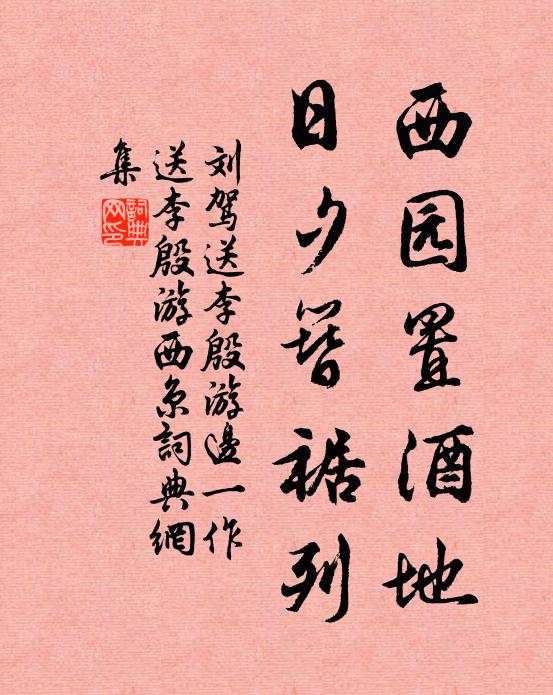 西园置酒地
日夕簪裾列
刘驾送李殷游边一作
送李殷游西京詞典網
集
詞典網印